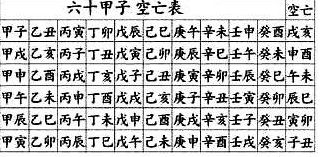 六十甲子 空亡表 空亡
甲子 乙丑 丙寅 丁卯 戊辰 己巳 庚午 辛未 壬申 癸酉 戌亥
甲戌 乙亥 丙子 丁丑 戊寅 己卯 庚辰 辛巳 壬午 癸未 申酉
甲申 乙酉 丙戌 丁亥 戊子 己丑 庚寅 辛卯 壬辰 癸巳 午未
甲午 乙未 丙申 丁酉 戊戌 己亥 庚子 辛丑 壬寅 癸卯 辰巳
甲辰 乙巳 丙午 丁未 戊申 己酉 庚戌 辛亥 壬子 癸丑 寅卯
甲寅 乙卯 丙辰 丁巳 戊午 己未 庚申 辛酉 壬戌 癸亥 子丑